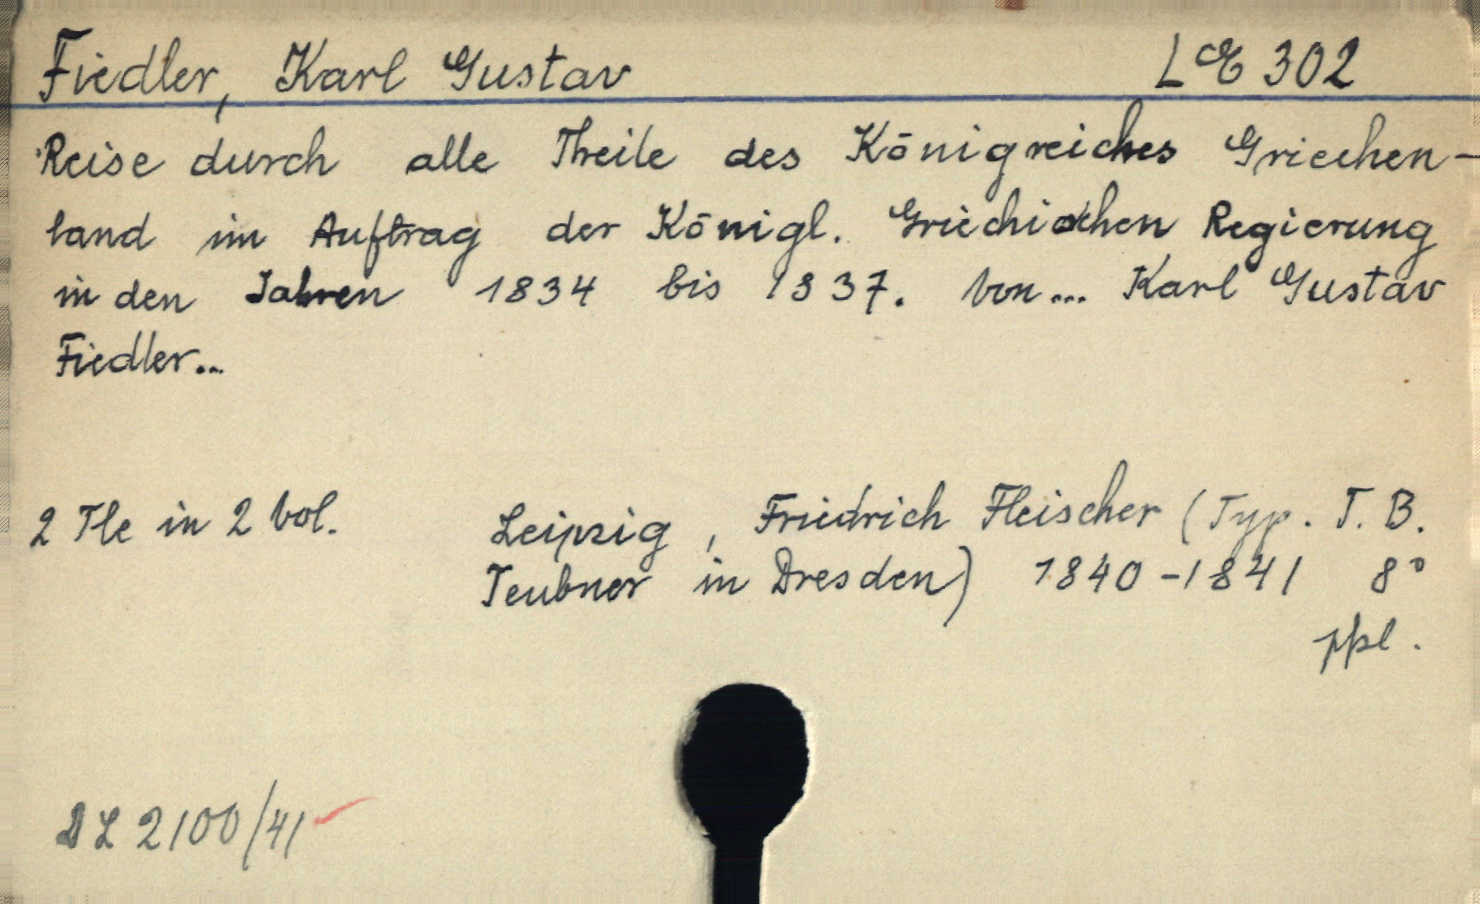 Fiedler, Karl Gustav LE 302
Reise durch alle Theile des Königreiches Griechen-
land im Auftrag der Königl. Griechischen Regierung
in den Jahren 1834 bis 1837. Von... Karl Gustav
Fiedler...
2 Tle in 2 vol. Leipzig, Friedrich Fleischer (Typ. T. B.
Teubner in Dresden) 1840-1841 8°
ppl.
DL 2100/41